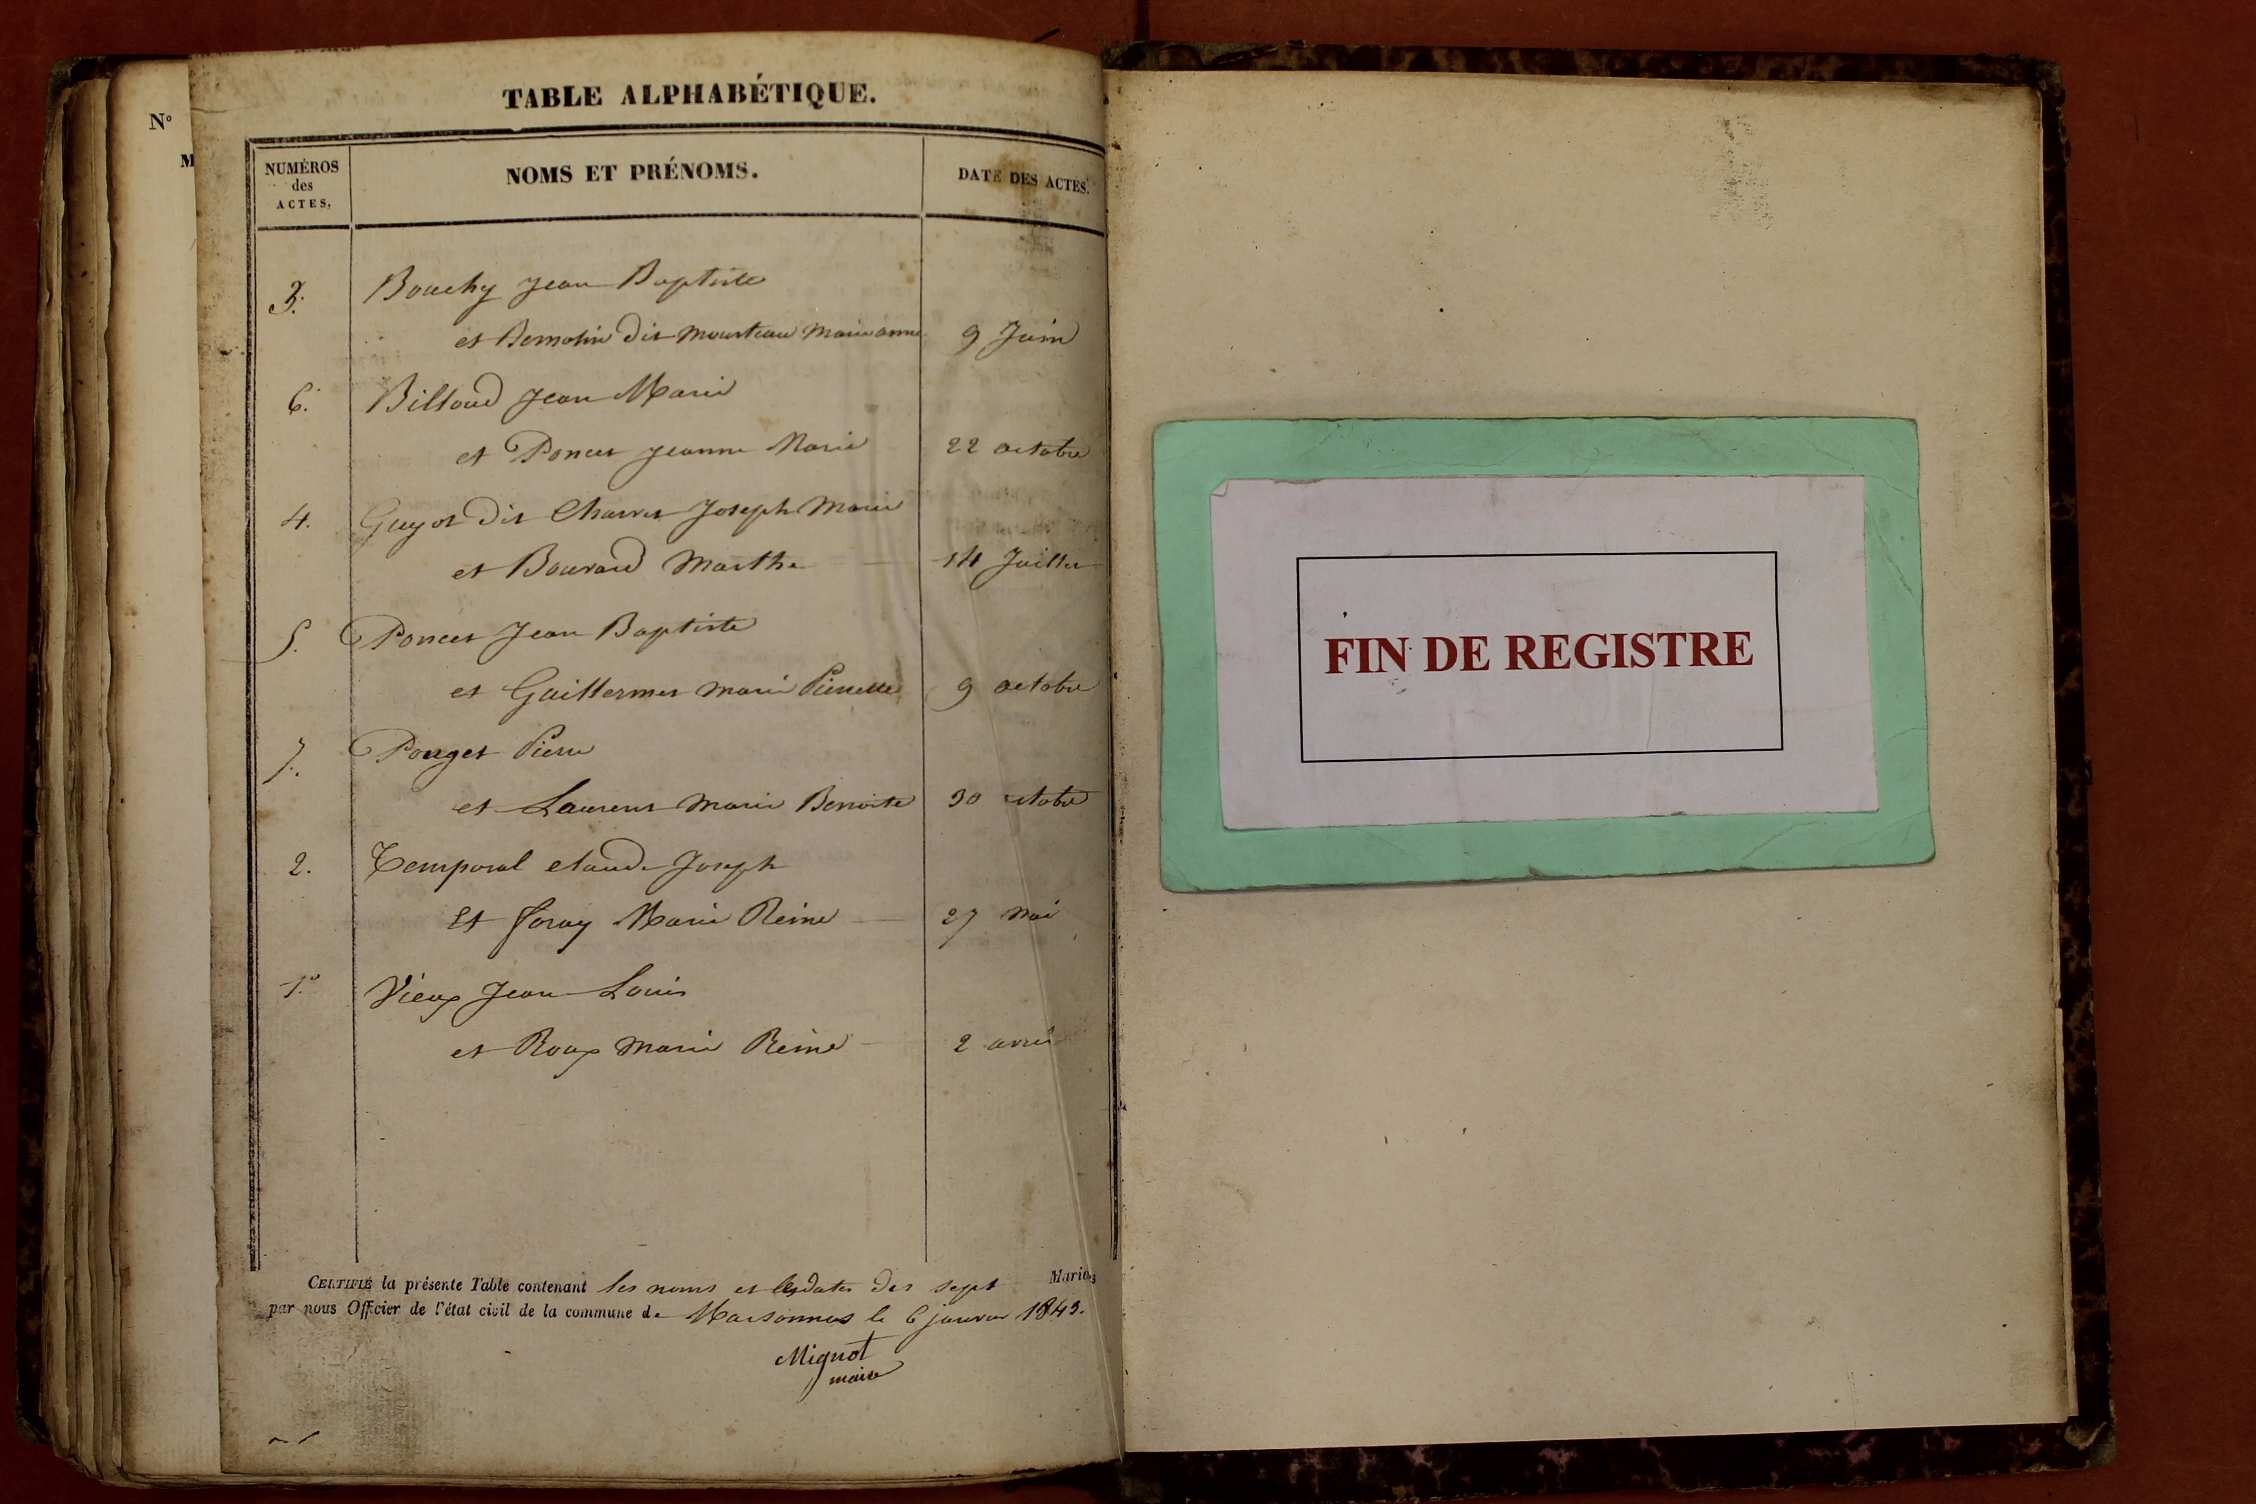 N°
M
TABLE ALPHABÉTIQUE.
NUMÉROS
des
ACTES.
NOMS ET PRÉNOMS.
DATE DES ACTES.
3. Bouchy Jean Baptiste
et dit Mourteau Marie anne 9 Juin
6. Billoud Jean Marie
et Poncet Jeanne Marie 22 octobre
4. Guyot dit Charvet Joseph Marie
et Bouvard Marthe 14 Juillet
5. Poncet Jean Baptiste
et Guillermet Marie Pierrette 9 octobre
7. Pouget Pierre
et Laurent Marie Benoite 30 octobre
2. Temporal claude Joseph
Et Foray Marie Reine 27 Mai
1.° Vieux Jean Louis
et Roux Marie Reine 2 avril
CERTIFIÉ la présente Table contenant les noms et les dates des sept Mariages
par nous Officier de l'état civil de la commune de Marsonnas le 6 janvier 1843.
Mignot
maire
FIN DE REGISTRE